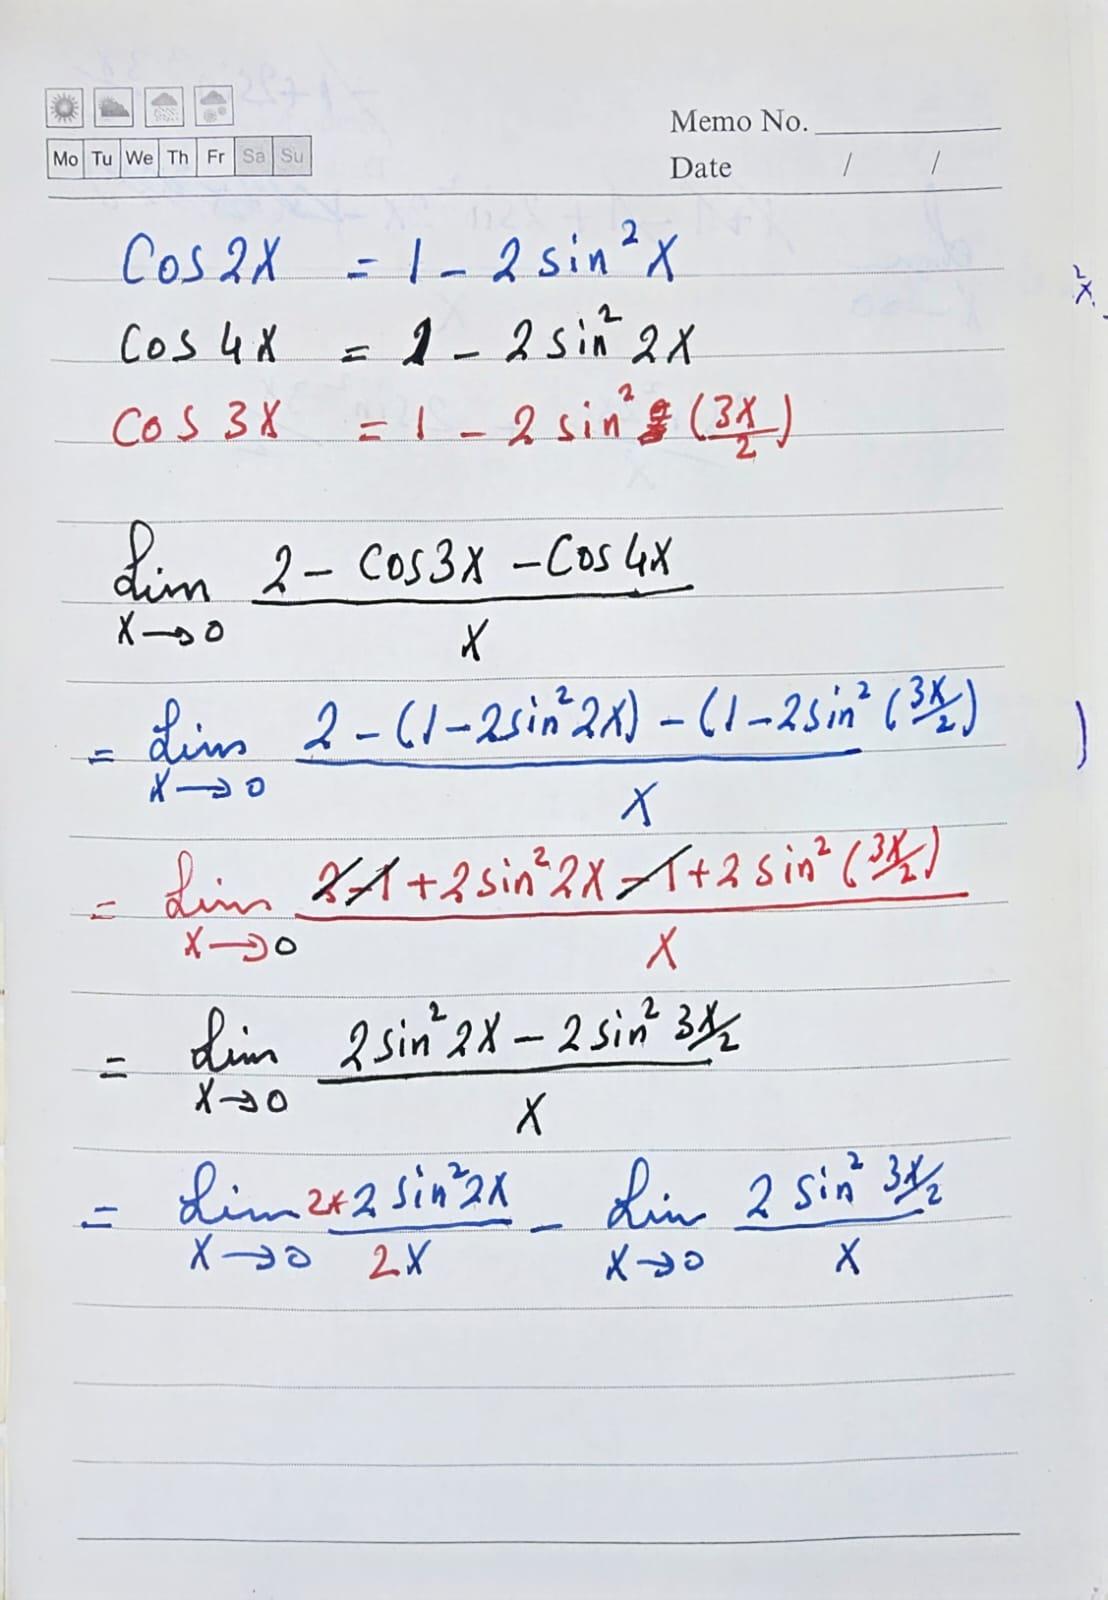 Memo No.
Mo Tu We Th Fr Sa Su
Date / /
Cos 2x = 1 - 2 sin²x
Cos 4x = 1 - 2 sin² 2x
Cos 3x = 1 - 2 sin² (3x/2)
Lim x→0 (2 - Cos3x - Cos 4x)/x
= Lim x→0 2-(1-2sin²2x)-(1-2sin²(3x/2) / x
= Lim x→0 (2-1+2sin²2x-1+2sin²(3x/2))/x
= Lim x→0 (2sin²2x - 2sin² 3x/2)/x
= Lim x→0 (2×2 sin²2x)/(2x) - Lim x→0 (2 sin² 3x/2)/x